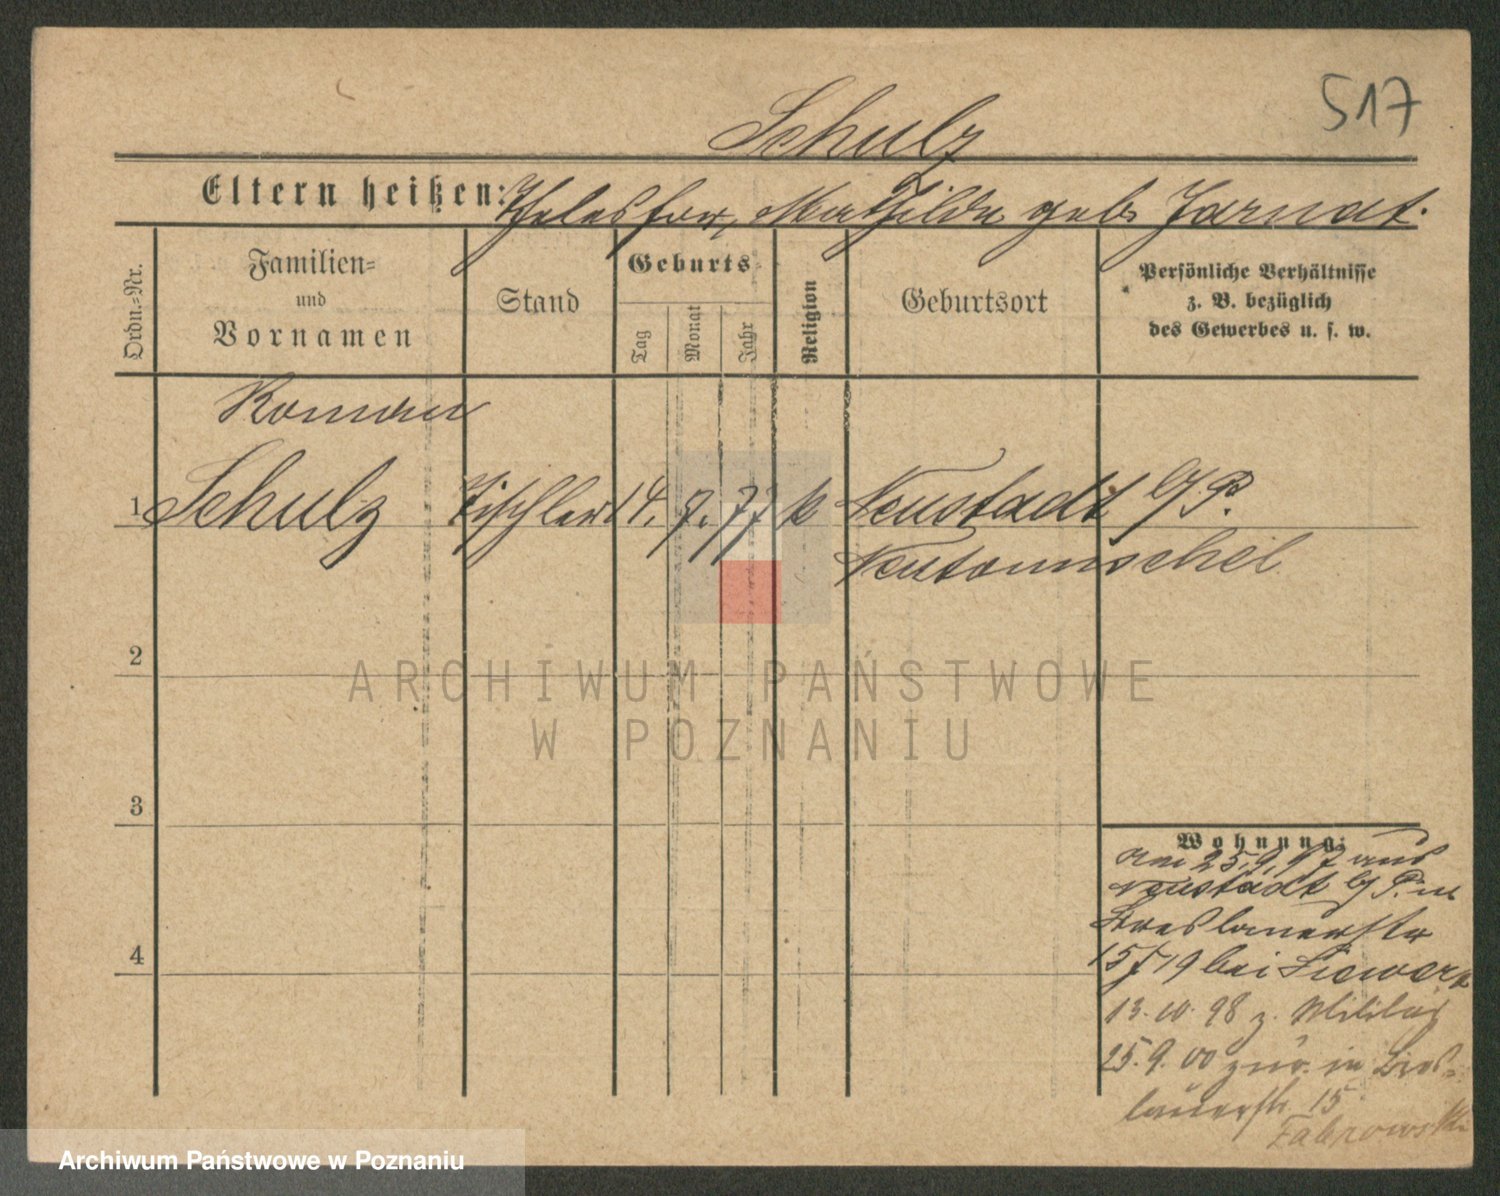 517
Schulz
Eltern heißen: Thelesfor, Mathilde geb. Jarnat.
Ordn.-Nr.
Familien-
und
Vornamen
Stand
Geburts-
Tag
Monat
Jahr
Religion
Geburtsort
Persönliche Verhältnisse
z. B. bezüglich
des Gewerbes u. s. w.
Roman
1 Schulz Tischler 14. 7. 77 k Neustadt b/P.
Neutomischel
2
3
4
Wohnung:
am 25.9.97 aus
Neustadt b/P. n
Breslauerstr
15/19 bei
13.10.98 z. Militär
25.9.00 zur. in Bres-
lauerstr. 15
Zabrowski
ARCHIWUM PAŃSTWOWE
W POZNANIU
Archiwum Państwowe w Poznaniu